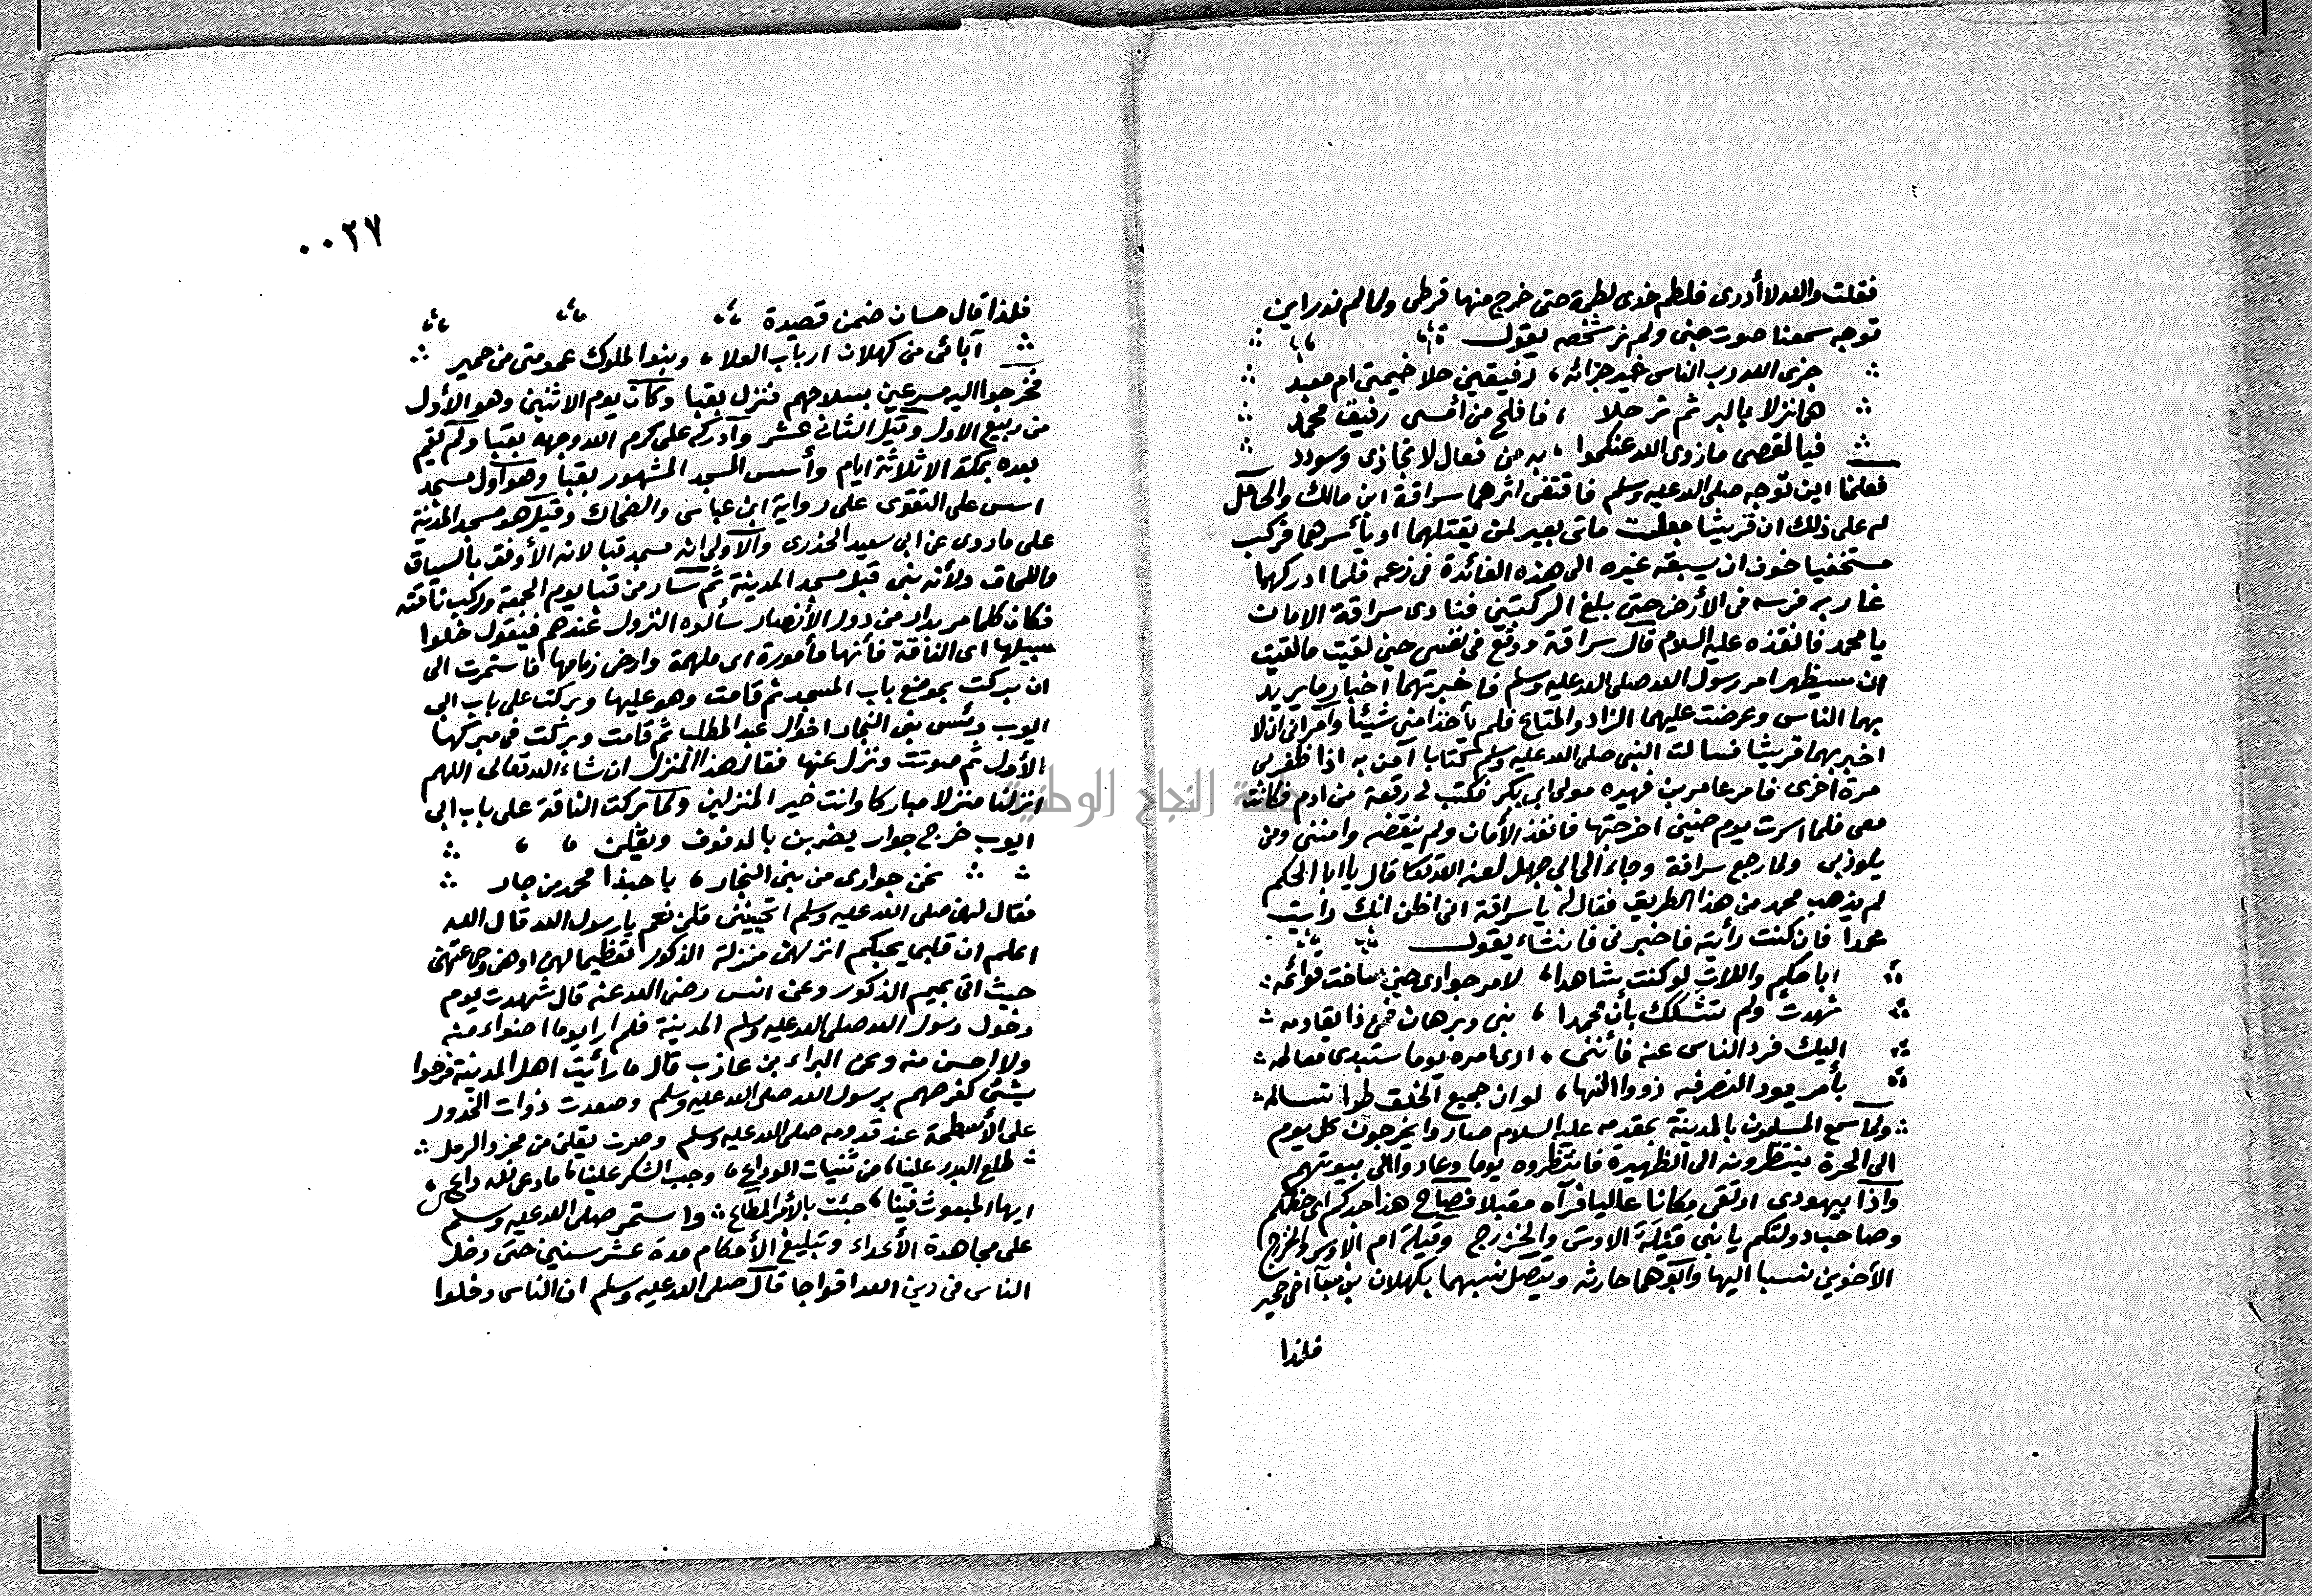 فقلت والله لا أدرى فلطم خدى لطمة حتى خرج منها قرطى ولما لم ندر اين
توجه سمعنا صوت جنى ولم نر شخصه يقول
جزى الله رب الناس خير جزائه ، رفيقين حلا خيمتى ام معبد
هما نزلا بالبر ثم ترحلا ، فافلح من أمسى رفيق محمد
فيا لقصى ما زوى الله عنكموا ، به من فعال لا تجازى وسودد
فعلمنا اين توجه صلى الله عليه وسلم فاقتفى اثرهما سراقة ابن مالك والحامل
له على ذلك ان قريشا جعلت مائى بعير لمن يقتلهما او يأسرهما فركب
مستخفيا خوف ان يسبقه غيره الى هذه الفائدة فى زعمه فلما ادركهما
غار به فرسه فى الأرض حتى بلغ الركبتين فنادى سراقة الامان
يا محمد فانقذه عليه السلام قال سراقة ووقع فى نفسى حين لقيت ما لقيت
ان سيظهر امر رسول الله صلى الله عليه وسلم فاخبرتهما اخبار ما يريد
بهما الناس وعرضت عليهما الزاد والمتاع فلم يأخذا منى شيئا وأمرانى ان لا
اخبر بهما قريشا فسالت النبى صلى الله عليه وسلم كتابا آمن به اذا ظفر بى
مرة اخرى فامر عامر بن فهيره مولى ابى بكر فكتب لى رقعة من ادم فكانت
معى فلما اسرت يوم حنين اخرجتها فانفذ الأمان ولم ينقضه وامننى ومن
يلوذ بى ولما رجع سراقة وجاء الى ابى جهل لعنه الله قال يا ابا الحكم
لم يذهب محمد من هذا الطريق فقال له يا سراقة انى اظن انك رايت
محمدا فان كنت رأيته فاخبرنى فانشاء يقول
ابا حكم واللات لو كنت شاهدا ، لامر جوادى حين ساخت قوائمه
شهدت ولم تشكك بأن محمدا ، نبى وبرهان فمن ذا يقاومه
اليك فرد الناس عنه فأننى ، ارى امره يوما ستبدى معالمه
بأمر يود النصر فيه ذووا النها ، لو ان جميع الخلق طرا تسالمه
ولما سمع المسلمون بالمدينة بمقدمه عليه السلام صاروا يخرجون كل يوم
الى الحرة ينتظرونه الى الظهيرة فانتظروه يوما وعادوا الى بيوتهم
واذا بيهودى ارتقى مكانا عاليا فرآه مقبلا فصاح هذا جدكم اى حظكم
وصاحب دولتكم يا بنى قيلة الاوس والخزرج وقيلة ام الاوس والخزرج
الأخوين نسبا اليها وأبوهما حارثه ويتصل نسبهما بكهلان بن سبآ اخى حمير
فلذا
٠٠٢٧
فلذا قال حسان ضمن قصيدة
آبائى من كهلان ارباب العلا ، وبنوا الملوك عمومتى من حمير
فخرجوا اليه مسرعين بسلاحهم فنزل بقبا وكان يوم الاثنين وهو الأول
من ربيع الاول وقيل الثانى عشر وأدركه على كرم الله وجهه بقبا ولم يقم
بعده بمكة الا ثلاثة ايام وأسس المسجد المشهور بقبا وهو اول مسجد
اسس على التقوى على رواية ابن عباس والضحاك وقيل هو مسجد المدينة
على ما روى عن ابى سعيد الخذرى والاولى انه مسجد قبا لانه الأوفق بالسياق
واللحاق ولأنه بنى قبل مسجد المدينة ثم سار من قبا يوم الجمعة وركب ناقته
فكان كلما مر بدار من دور الأنصار سألوه النزول عندهم فيقول خلوا
سبيلها اى الناقة فأنها مأمورة اى ملهمة وارض زمامها فاستمرت الى
ان بركت بموضع باب المسجد ثم قامت وهو عليها وبركت على باب ابى
ايوب رئس بنى النجار اخوال عبد المطلب ثم قامت وبركت فى مبركها
الأول ثم صوتت ونزل عنها فقال هذا المنزل ان شاء الله تعالى اللهم
انزلنا منزلا مباركا وانت خير المنزلين ولما بركت الناقة على باب ابى
ايوب خرج جوار يضربن بالدفوف ويقلن
نحن جوارى من بنى النجار ، يا حبذا محمد من جار
فقال لهن صلى الله عليه وسلم اتحبيننى قلن نعم يا رسول الله قال الله
اعلم ان قلبى يحبكم انزلهن منزلة الذكور تعظيما لهن او هن وجماعتهن
حيث اتى بميم الذكور وعن انس رضى الله عنه قال شهدت يوم
دخول رسول الله صلى الله عليه وسلم المدينة فلم ار يوما اضواء منه
ولا احسن منه وعن البراء بن عازب قال ما رأيت اهل المدينة فرحوا
بشئ كفرحهم برسول الله صلى الله عليه وسلم وصعدت ذوات الخدور
على الأسطحة عند قدومه صلى الله عليه وسلم وصرن يقلن من مجزو الرمل
طلع البدر علينا ، من ثنيات الوداع ، وجب الشكر علينا ، ما دعى لله داع ،
ايها المبعوث فينا ، جئت بالأمر المطاع واستمر صلى الله عليه وسلم
على مجاهدة الأعداء وتبليغ الأحكام مدة عشر سنين حتى دخل
الناس فى دين الله افواجا قال صلى الله عليه وسلم ان الناس دخلوا
النجاح الوطنية